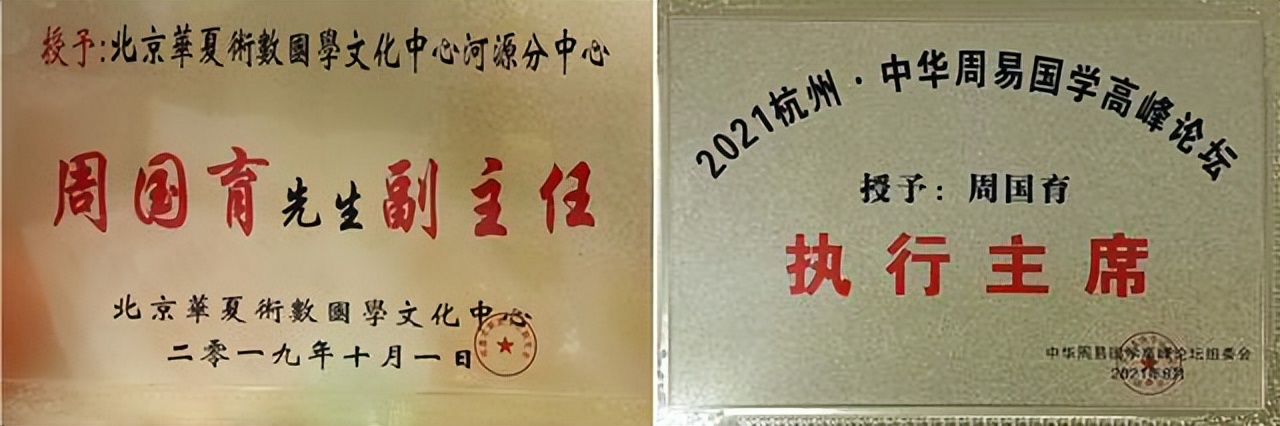 授予:北京華夏術數國學文化中心河源分中心
周国育先生副主任
北京華夏術數國學文化中心
二零一九年十月一日
2021杭州·中华周易国学高峰论坛
授予：周国育
执行主席
中华周易国学高峰论坛组委会
2021年8月